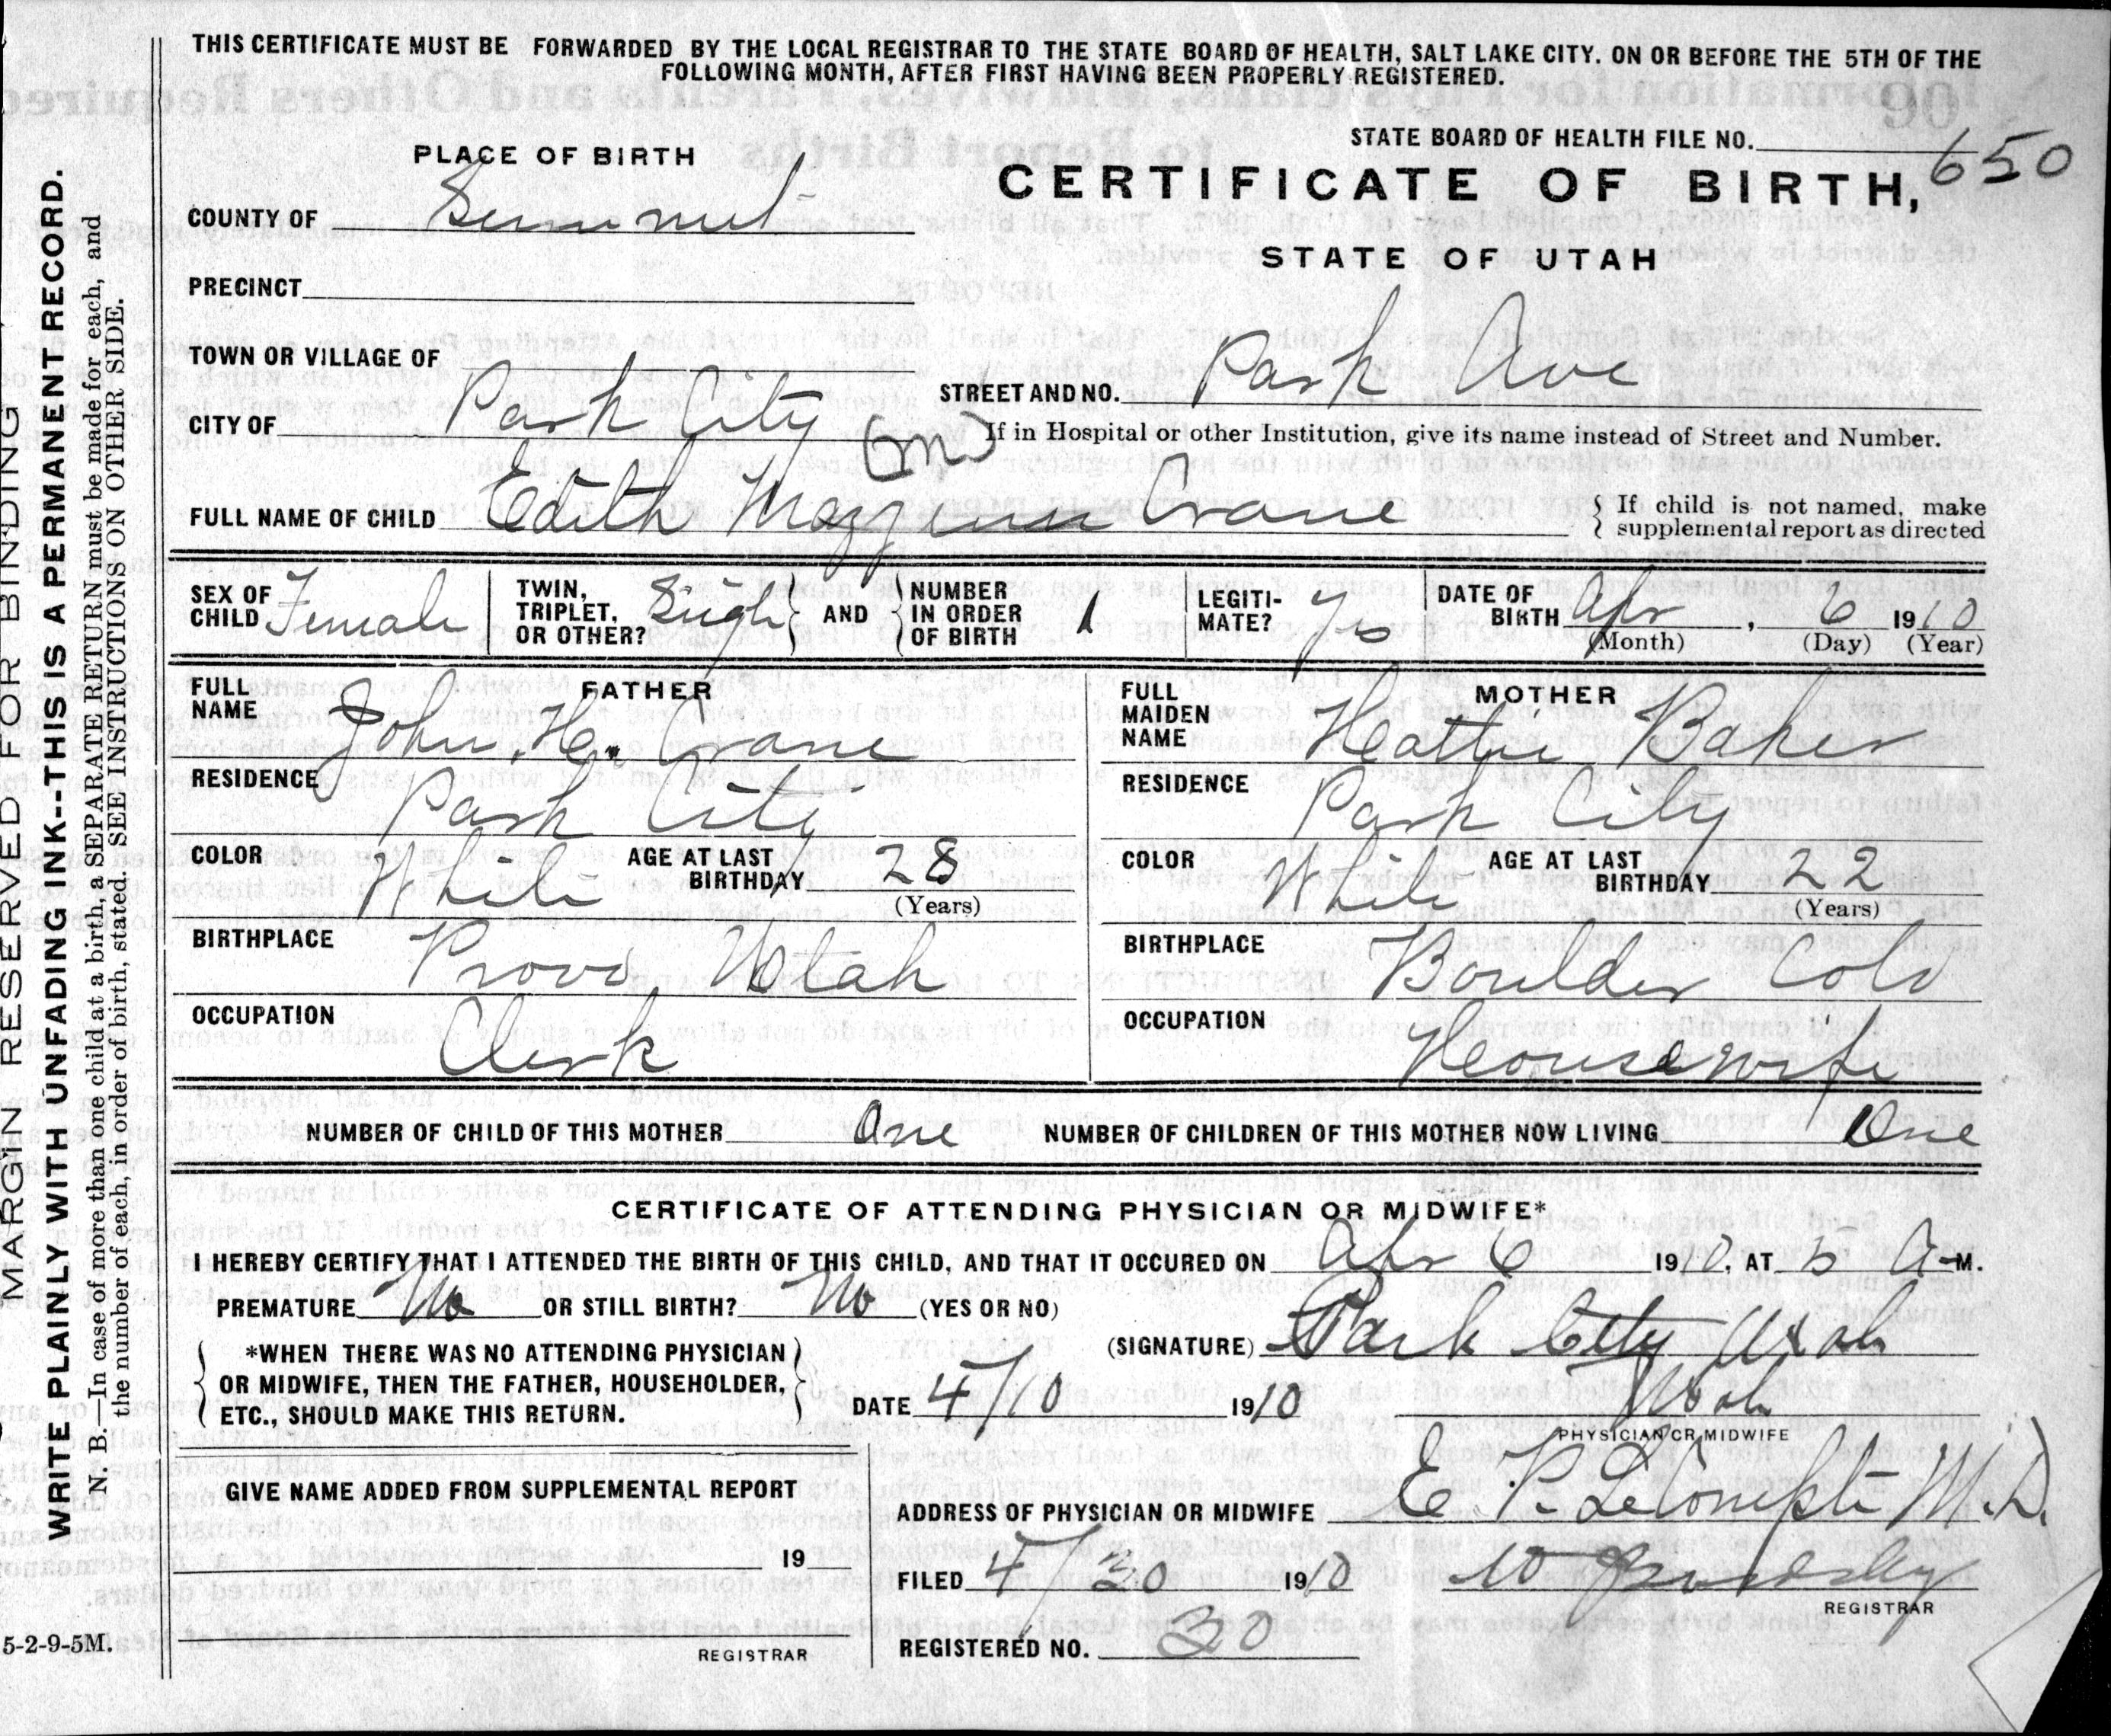 THIS CERTIFICATE MUST BE FORWARDED BY THE LOCAL REGISTRAR TO THE STATE BOARD OF HEALTH, SALT LAKE CITY. ON OR BEFORE THE 5TH OF THE
FOLLOWING MONTH, AFTER FIRST HAVING BEEN PROPERLY REGISTERED.
STATE BOARD OF HEALTH FILE NO. 650
PLACE OF BIRTH
CERTIFICATE OF BIRTH,
COUNTY OF Summit
STATE OF UTAH
PRECINCT
TOWN OR VILLAGE OF
STREET AND NO. Park Ave
CITY OF Park City
If in Hospital or other Institution, give its name instead of Street and Number.
FULL NAME OF CHILD Edith Crane
If child is not named, make
supplemental report as directed
SEX OF CHILD Female
TWIN, TRIPLET, OR OTHER? Singl AND NUMBER IN ORDER OF BIRTH 1
LEGITI-MATE? Yes
DATE OF BIRTH Apr, 6 1910
(Month) (Day) (Year)
FATHER
FULL NAME John H. Crane
RESIDENCE Park City
COLOR White AGE AT LAST BIRTHDAY 28
(Years)
BIRTHPLACE Provo Utah
OCCUPATION Clerk
MOTHER
FULL MAIDEN NAME Hattie Baker
RESIDENCE Park City
COLOR White AGE AT LAST BIRTHDAY 22
(Years)
BIRTHPLACE Boulder Colo
OCCUPATION Housewife
NUMBER OF CHILD OF THIS MOTHER One NUMBER OF CHILDREN OF THIS MOTHER NOW LIVING One
CERTIFICATE OF ATTENDING PHYSICIAN OR MIDWIFE*
I HEREBY CERTIFY THAT I ATTENDED THE BIRTH OF THIS CHILD, AND THAT IT OCCURED ON Apr 6 1910, AT 5 A-M.
PREMATURE No OR STILL BIRTH? No (YES OR NO)
*WHEN THERE WAS NO ATTENDING PHYSICIAN
OR MIDWIFE, THEN THE FATHER, HOUSEHOLDER,
ETC., SHOULD MAKE THIS RETURN.
(SIGNATURE) Park City Utah
DATE 4/10 1910 Utah
PHYSICIAN OR MIDWIFE
GIVE NAME ADDED FROM SUPPLEMENTAL REPORT
19
REGISTRAR
ADDRESS OF PHYSICIAN OR MIDWIFE E P. LeCompte M.D.
FILED 4/30 1910
REGISTRAR
REGISTERED NO. 30
5-2-9-5M.
MARGIN RESERVED FOR BINDING
WRITE PLAINLY WITH UNFADING INK--THIS IS A PERMANENT RECORD.
N. B.—In case of more than one child at a birth, a SEPARATE RETURN must be made for each, and
the number of each, in order of birth, stated. SEE INSTRUCTIONS ON OTHER SIDE.